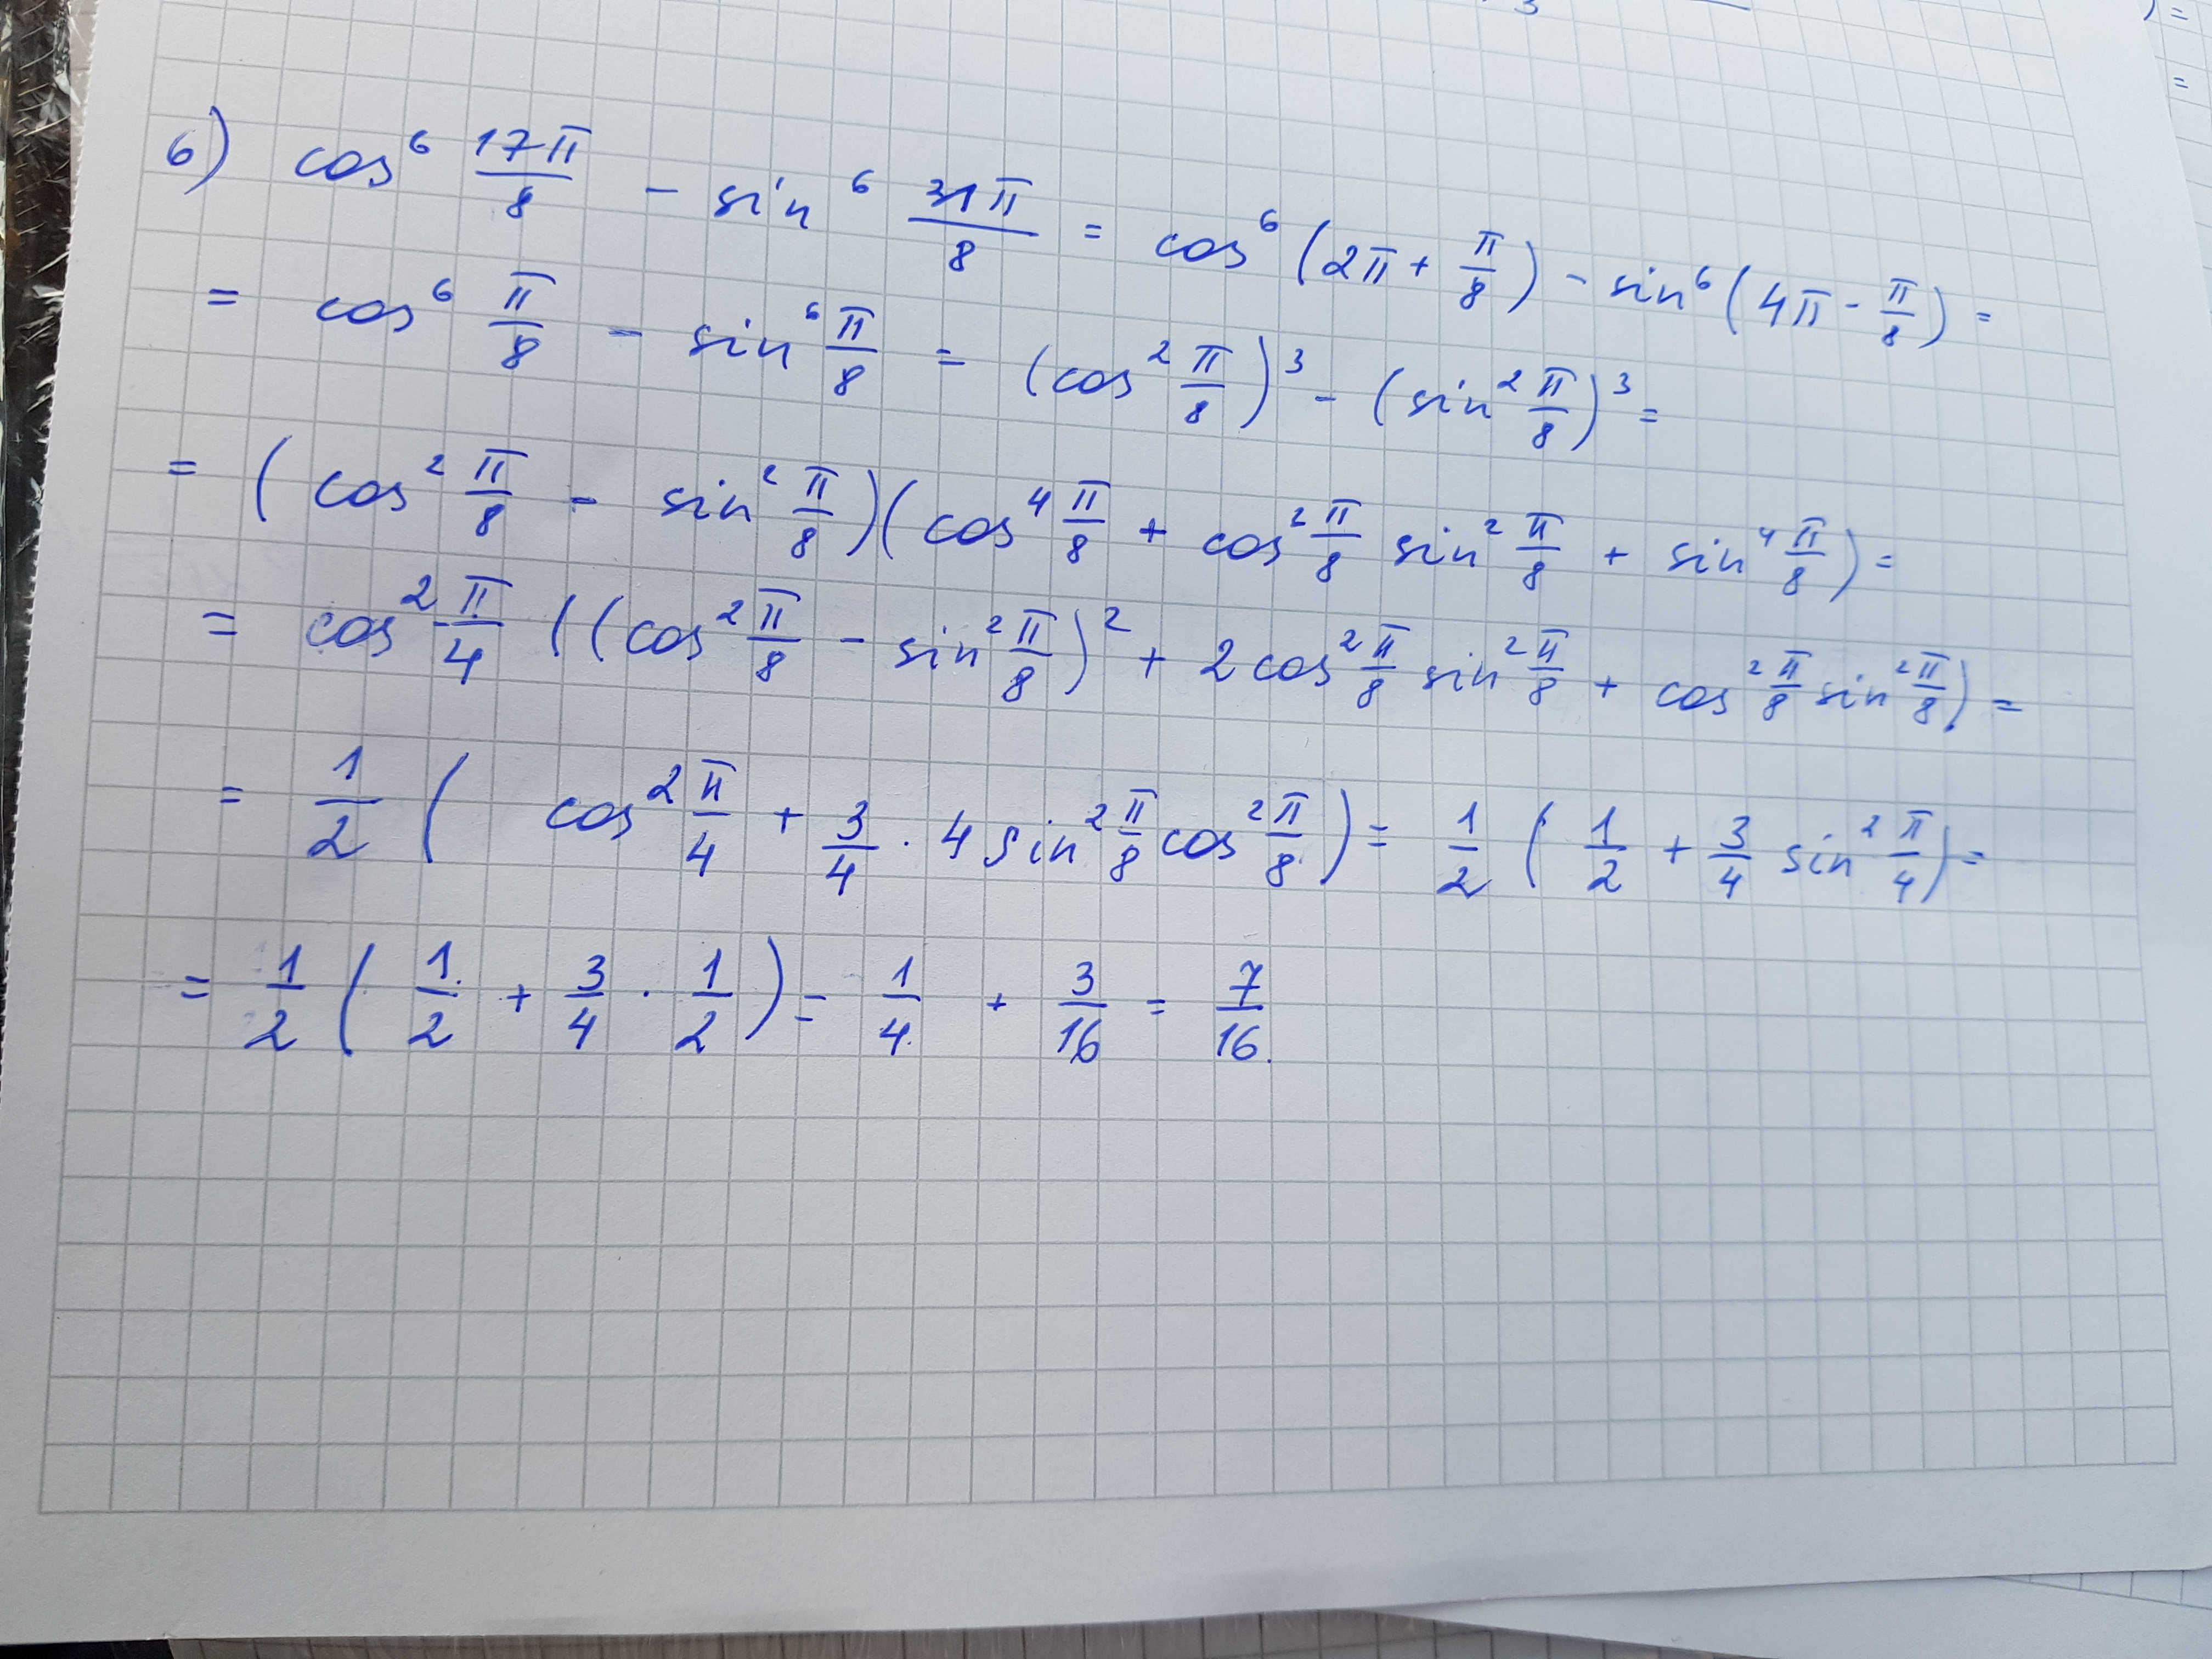 6) cos⁶ 17π/8 − sin⁶ 31π/8 = cos⁶ (2π + π/8) − sin⁶ (4π − π/8) =
= cos⁶ π/8 − sin⁶ π/8 = (cos² π/8)³ − (sin² π/8)³ =
= (cos² π/8 − sin² π/8)(cos⁴ π/8 + cos² π/8 sin² π/8 + sin⁴ π/8) =
= cos² π/4 ((cos² π/8 − sin² π/8)² + 2 cos² π/8 sin² π/8 + cos² π/8 sin² π/8) =
= 1/2 ( cos² π/4 + 3/4 · 4 sin² π/8 cos² π/8) = 1/2 ( 1/2 + 3/4 sin² π/4) =
= 1/2 ( 1/2 + 3/4 · 1/2 ) = 1/4 + 3/16 = 7/16.